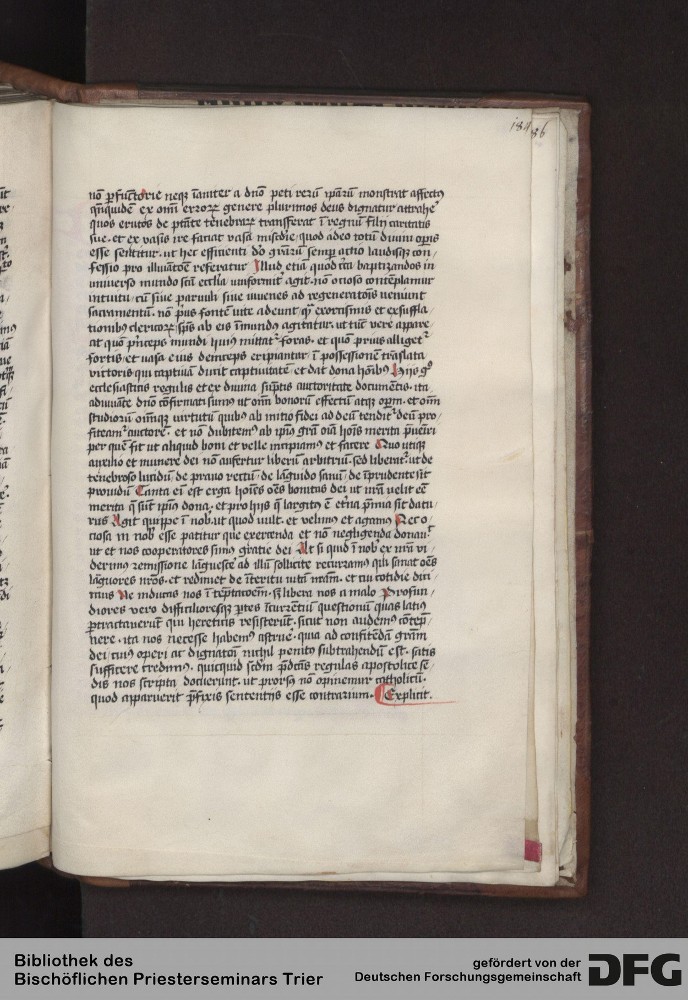 184 86
nō ꝑfunctorie neqꝫ īaniter a dn̄o peti rerū ipārū monstrat affectꝯ
qn̄quidē ex om̄i erroꝝ genere plurimos deus dignatur attrahe᷒
quos erutos de ptāte tenebraꝝ transferat ī regnū filij caritatis
sue · et ex vasis ire faciat vasa mīe · quod adeo totū diuini oꝑis
esse sentitur · ut hec efficienti dō gr̄arū semꝑ actio laudisqꝫ con-
fessio pro illuīatōe referatur Illud etiā quod circa baptizandos in
uniuerso mundo scā ecclīa uniformit᷒ agit · nō ocioso contēplamur
intuitu · cū siue ꝑuuli siue iuuenes ad regeneratōis veniunt
sacramentū · nō pͥus fontē uite adeunt qͣ exorcismis et exsuffla
tionibꝯ clericoꝝ sp̄s ab eis īmundꝯ agitatur · ut tūc vere appare
at quō pͥnceps mundi huiꝯ mittat᷒ foras · et quō priꝯ alliget᷒
fortis · et uasa eiꝯ deinceps eripiantur · ī possessionē trāslata
victoris qui captiuā ducit captiuitatē · et dat dona hōibꝯ Hijs gͦ
ecclesiasticis regulis et ex diuina suptis auctoritate documētis · ita
adiuuāte dn̄o cōfirmati sumꝯ ut om̄m bonorū effectū atqꝫ oꝑm · et om̄
studiorū om̄iqꝫ virtutū quibꝯ ab initio fidei ad deū tendit᷒ deū pro-
fiteam᷒ auctorē · et nō dubitemꝯ ab ipīꝯ gr̄a oīa hoīs merita p̄ueniri
per quē fit ut aliquid boni et velle incipiamꝯ et facere Quo utiqꝫ
auxilio et munere dei nō aufertur liberū arbitriū · sed liberat᷒ · ut de
tenebroso lucidū · de prauo rectū · de lāguido sanū · de īprudente sit
prouidū Tanta ei est erga hoīes oēs bonitas dei ut nr̄a uelit eē
merita q̄ sūt ipīꝯ dona · et pro hijs q̄ largitꝯ ē et̄na p̄mia sit datu-
rus Agit quippe ī nobꝫ ut quod vult · et velimꝯ et agamꝯ Nec o-
ciosa in nobꝫ esse patitur que exercenda et nō negligenda donauͭ
ut et nos cooperatores simꝯ gratie dei At si quid ī nobꝫ ex nr̄a vi-
derimꝯ remissione lāguesc̄e ad illū sollicite recurramꝯ qui sanat oēs
lāguores nr̄os · et redimet de īteritu uitā nr̄am · et cui cotidie dici-
mus Ne inducas nos ī tēptacōem · sꝫ libera nos a malo Profun-
diores vero difficilioresqꝫ ꝑtes īcurrentiū questionū quas latiꝯ
ꝑtractauerūt qui hereticis resisterūt · sicut non audemꝯ cōtēp-
nere · ita nos necesse habemꝯ astrue᷒ · quia ad confitēdā gr̄am
dei cuiꝯ operi ac dignatōi nichil penitꝯ subtrahendū est · satis
sufficere credimꝯ · quicquid scdm p̄dc̄as regulas apostolice se-
dis nos scripta docuerunt · ut prorsꝯ nō opinemur catholicū ·
quod apparuerit p̄fixis sententijs esse contrarium · Explicit ·
Bibliothek des
Bischöflichen Priesterseminars Trier
gefördert von der
Deutschen Forschungsgemeinschaft
DFG